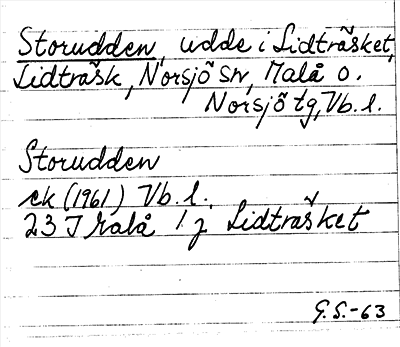 Storudden, udde i Lidträsket,
Lidträsk, Norsjö sn, Malå o.
Norsjö tg, Vb. l.
Storudden
ek (1961) Vb. l.
23 J Malå 1 j Lidträsket
G. S. -63